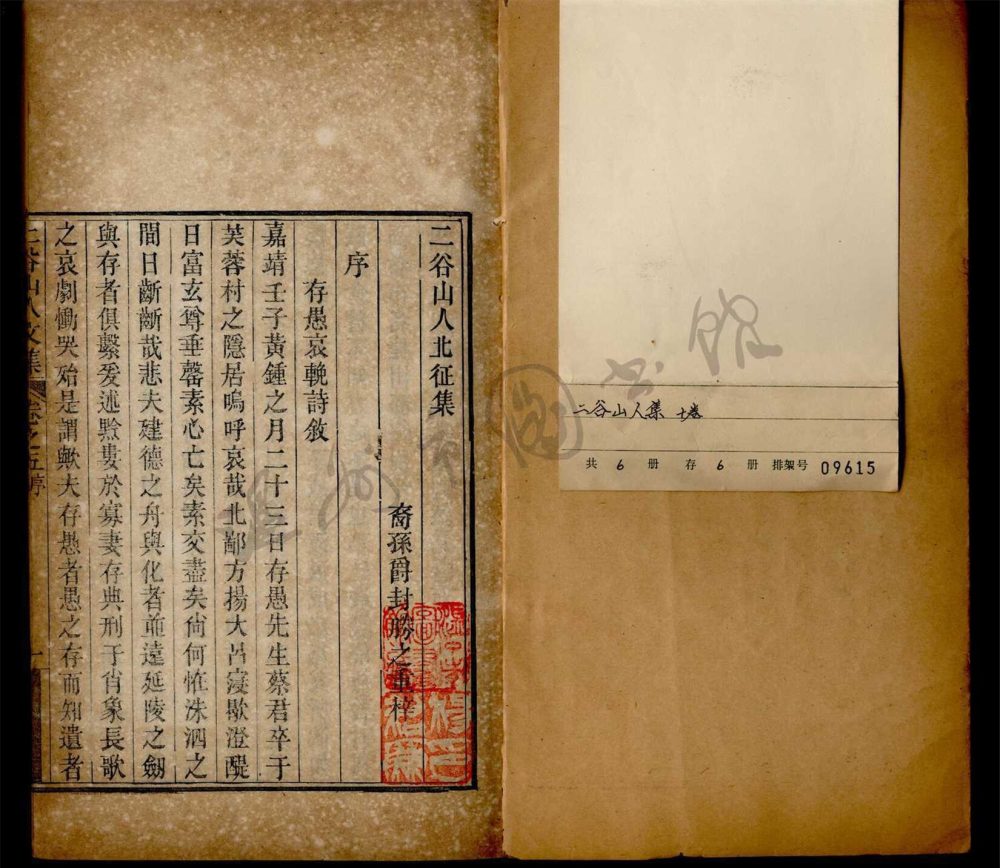 二谷山人北征集
裔孫爵封勝之重梓
序
存愚哀輓詩敘
嘉靖壬子黃鍾之月二十三日存愚先生蔡君卒于
芙蓉村之隱居嗚呼哀哉北鄙方揚大呂寖歇澄醍
日富玄尊垂罄素心亡矣素交盡矣尙何惟洙泗之
間日齗齗哉悲夫建德之舟與化者並遠延陵之劒
與存者俱繫爰述黔婁於寡妻存典刑于肖象長歌
之哀劇慟哭殆是謂歟夫存愚者愚之存而知遺者
二谷山人文集 卷之五序 一
二谷山人集
共 6 册 存 6 册 排架号 09615